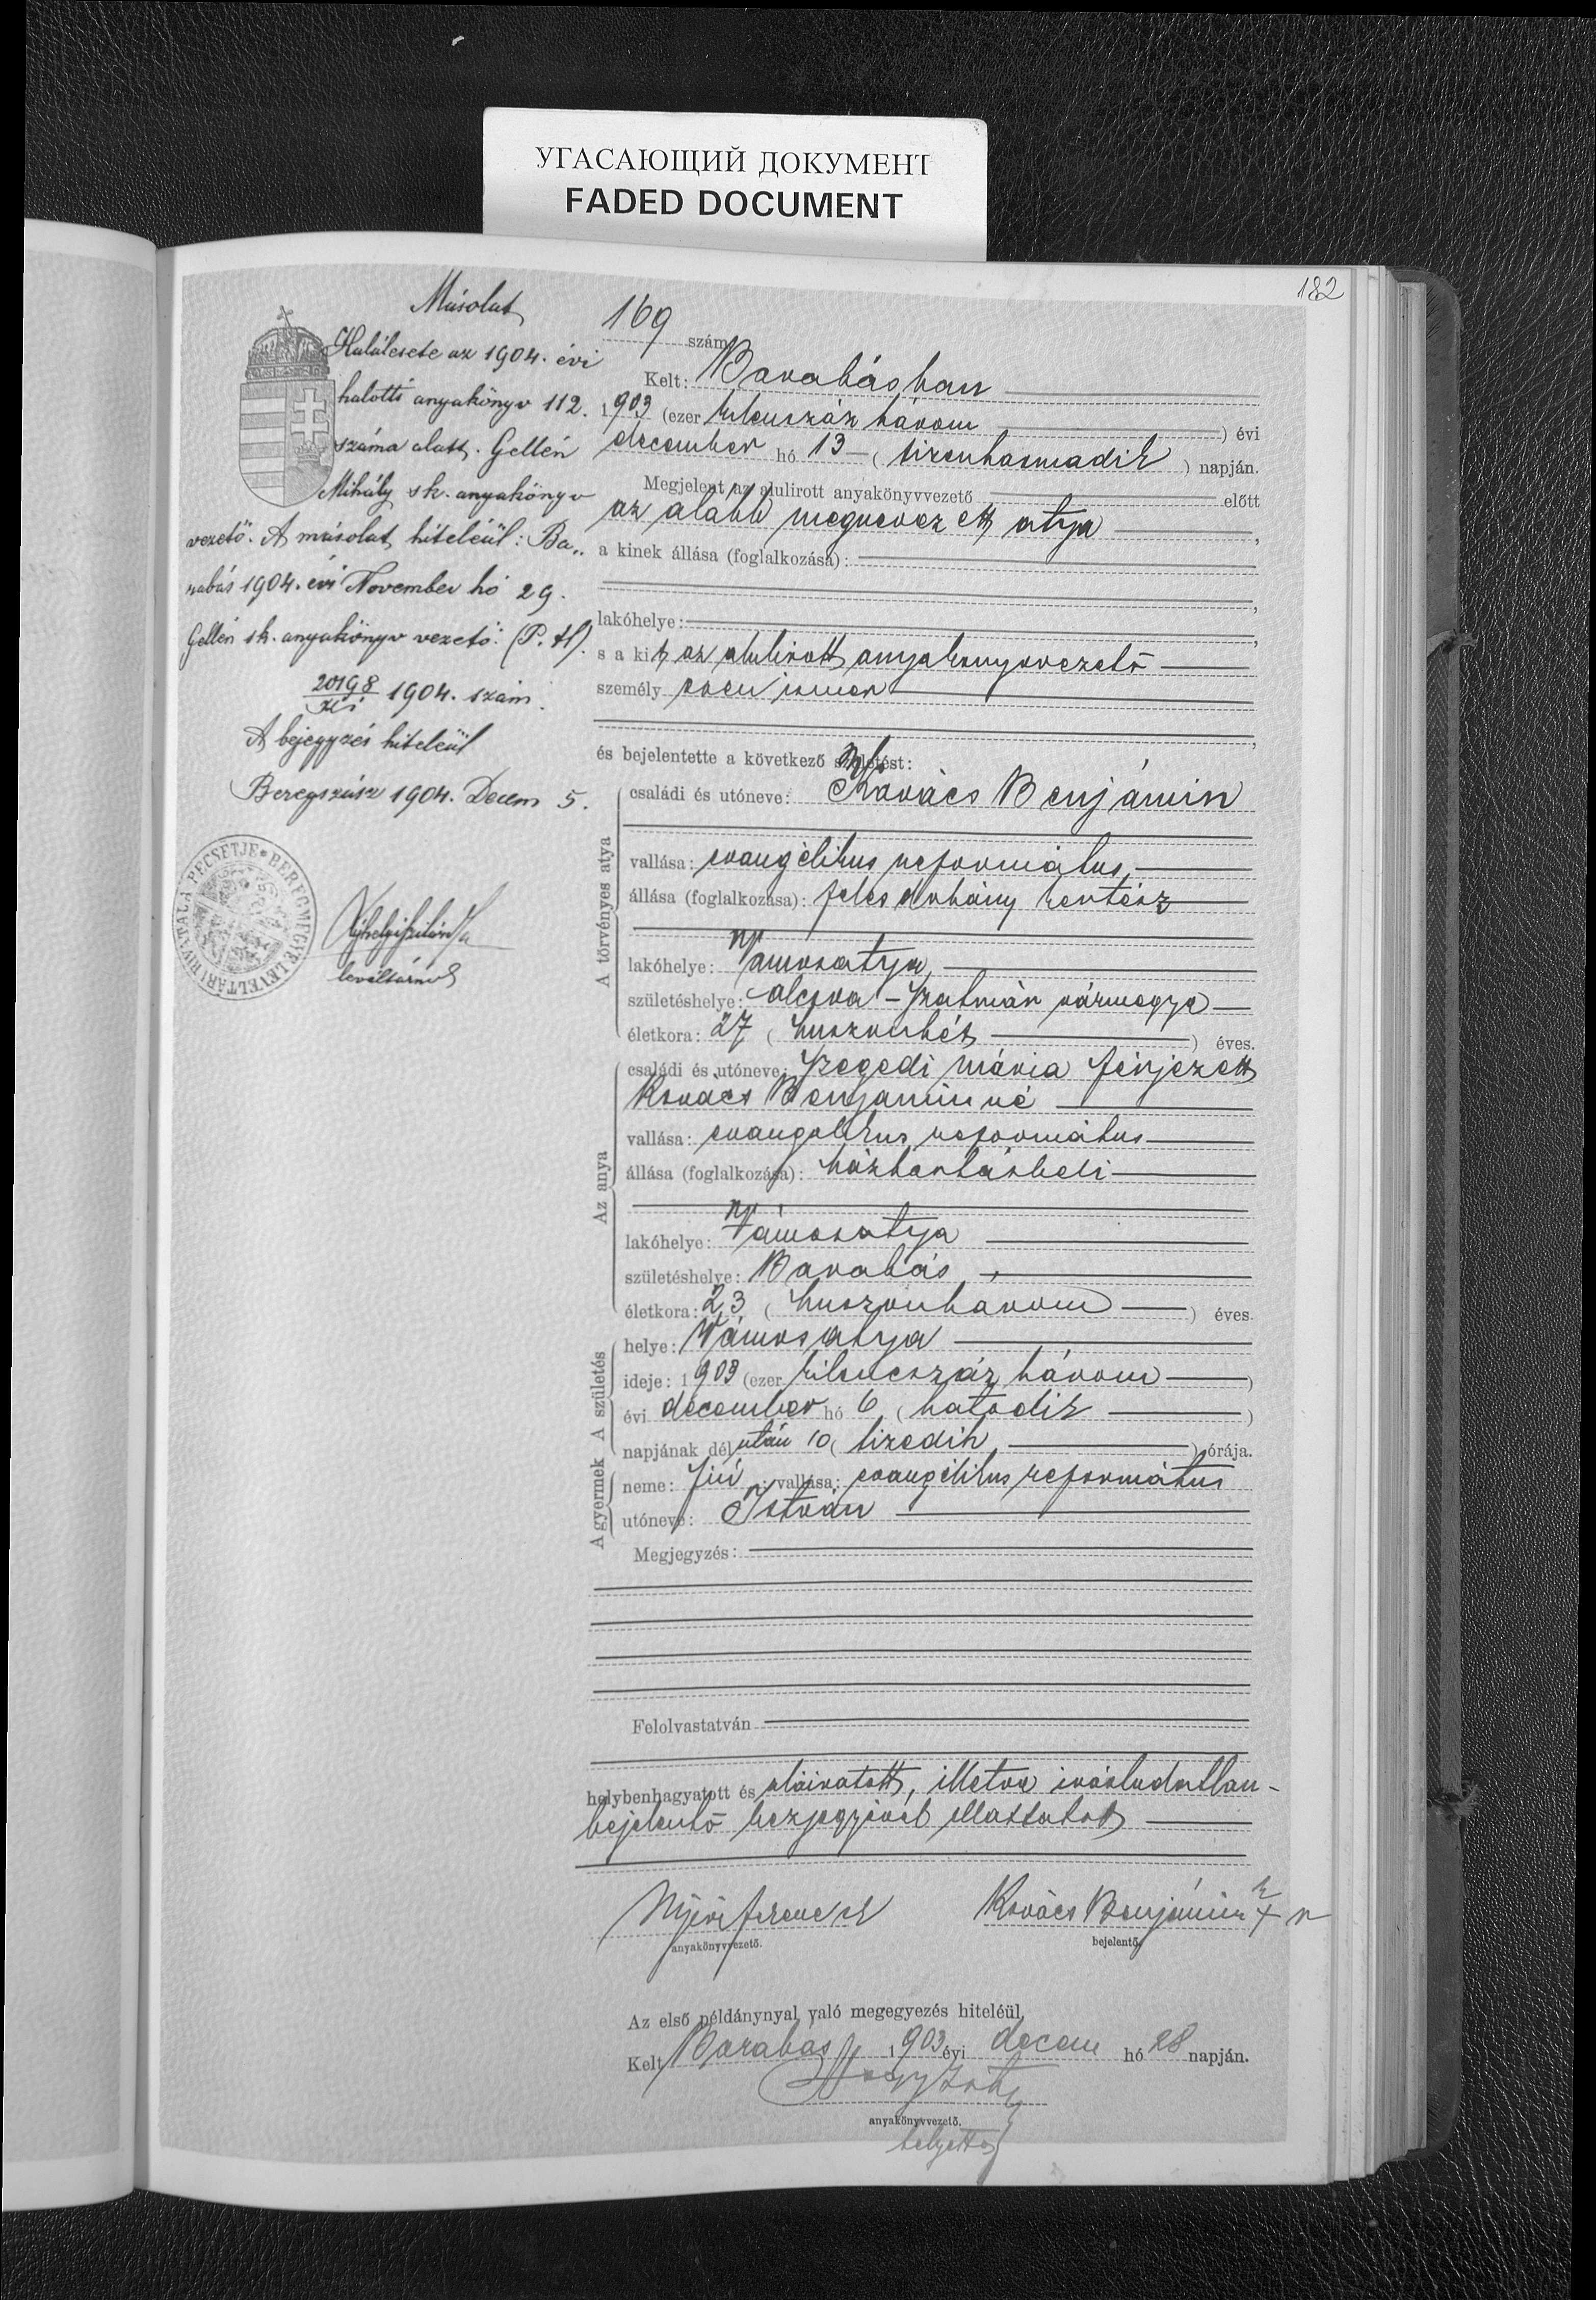 УГАСАЮЩИЙ ДОКУМЕНТ
FADED DOCUMENT
182
Másolat
Halálesete az 1904. évi
halotti anyakönyv 112.
száma alatt. Gellén
Mihály sk. anyakönyv
vezető. A másolat hiteléül: Ba„
rabás 1904. évi November hó 29.
Gellén sk. anyakönyv vezető. (P. H).
20198
1904. szám.
A bejegyzés hiteléül
Beregszász 1904. Decem 5.
BEREGMEGYE LEVÉLTÁRI HIVATALA PECSÉTJE
levéltárnok
169 szám
Kelt: Barabásban
1903 (ezer kilenczszáz három ) évi
december hó 13 ( tizenharmadik ) napján.
Megjelent az alulirott anyakönyvvezető előtt
az alább megnevezett atya ,
a kinek állása (foglalkozása):
,
lakóhelye: ,
s a kit az alulirott anyakönyvvezető
személyesen ismer
,
és bejelentette a következő születést:
A törvényes atya
családi és utóneve: Kovács Benjámin
vallása: evangélikus református,
állása (foglalkozása): feles dohány kertész
lakóhelye: Vámosatya,
születéshelye: Szatmár vármegye
életkora: 27 ( huszonhét ) éves.
Az anya
családi és utóneve: Szegedi Mária férjezett
Kovács Benjaminné
vallása: evangelikus református
állása (foglalkozása): háztartásbeli
lakóhelye: Vámosatya
születéshelye: Barabás,
életkora: 23 ( huszonhárom ) éves.
A születés
helye: Vámosatya
ideje: 1903 (ezer kilenczszáz három )
évi december hó 6 ( hatodik )
napjának dél után 10 ( tizedik ) órája.
A gyermek
neme: fiú vallása: evangélikus református
utóneve: István
Megjegyzés:
Felolvastatván
helybenhagyatott és aláiratott, illetve irástudatlan-
bejelentő kézjegyével elláttatott
Nyíri Ferencz
Kovács Benjámin
anyakönyvvezető.
bejelentő.
Az első példánynyal való megegyezés hiteléül
Kelt Barabás 1903 évi decem hó 28 napján.
anyakönyvvezető.
helyettes